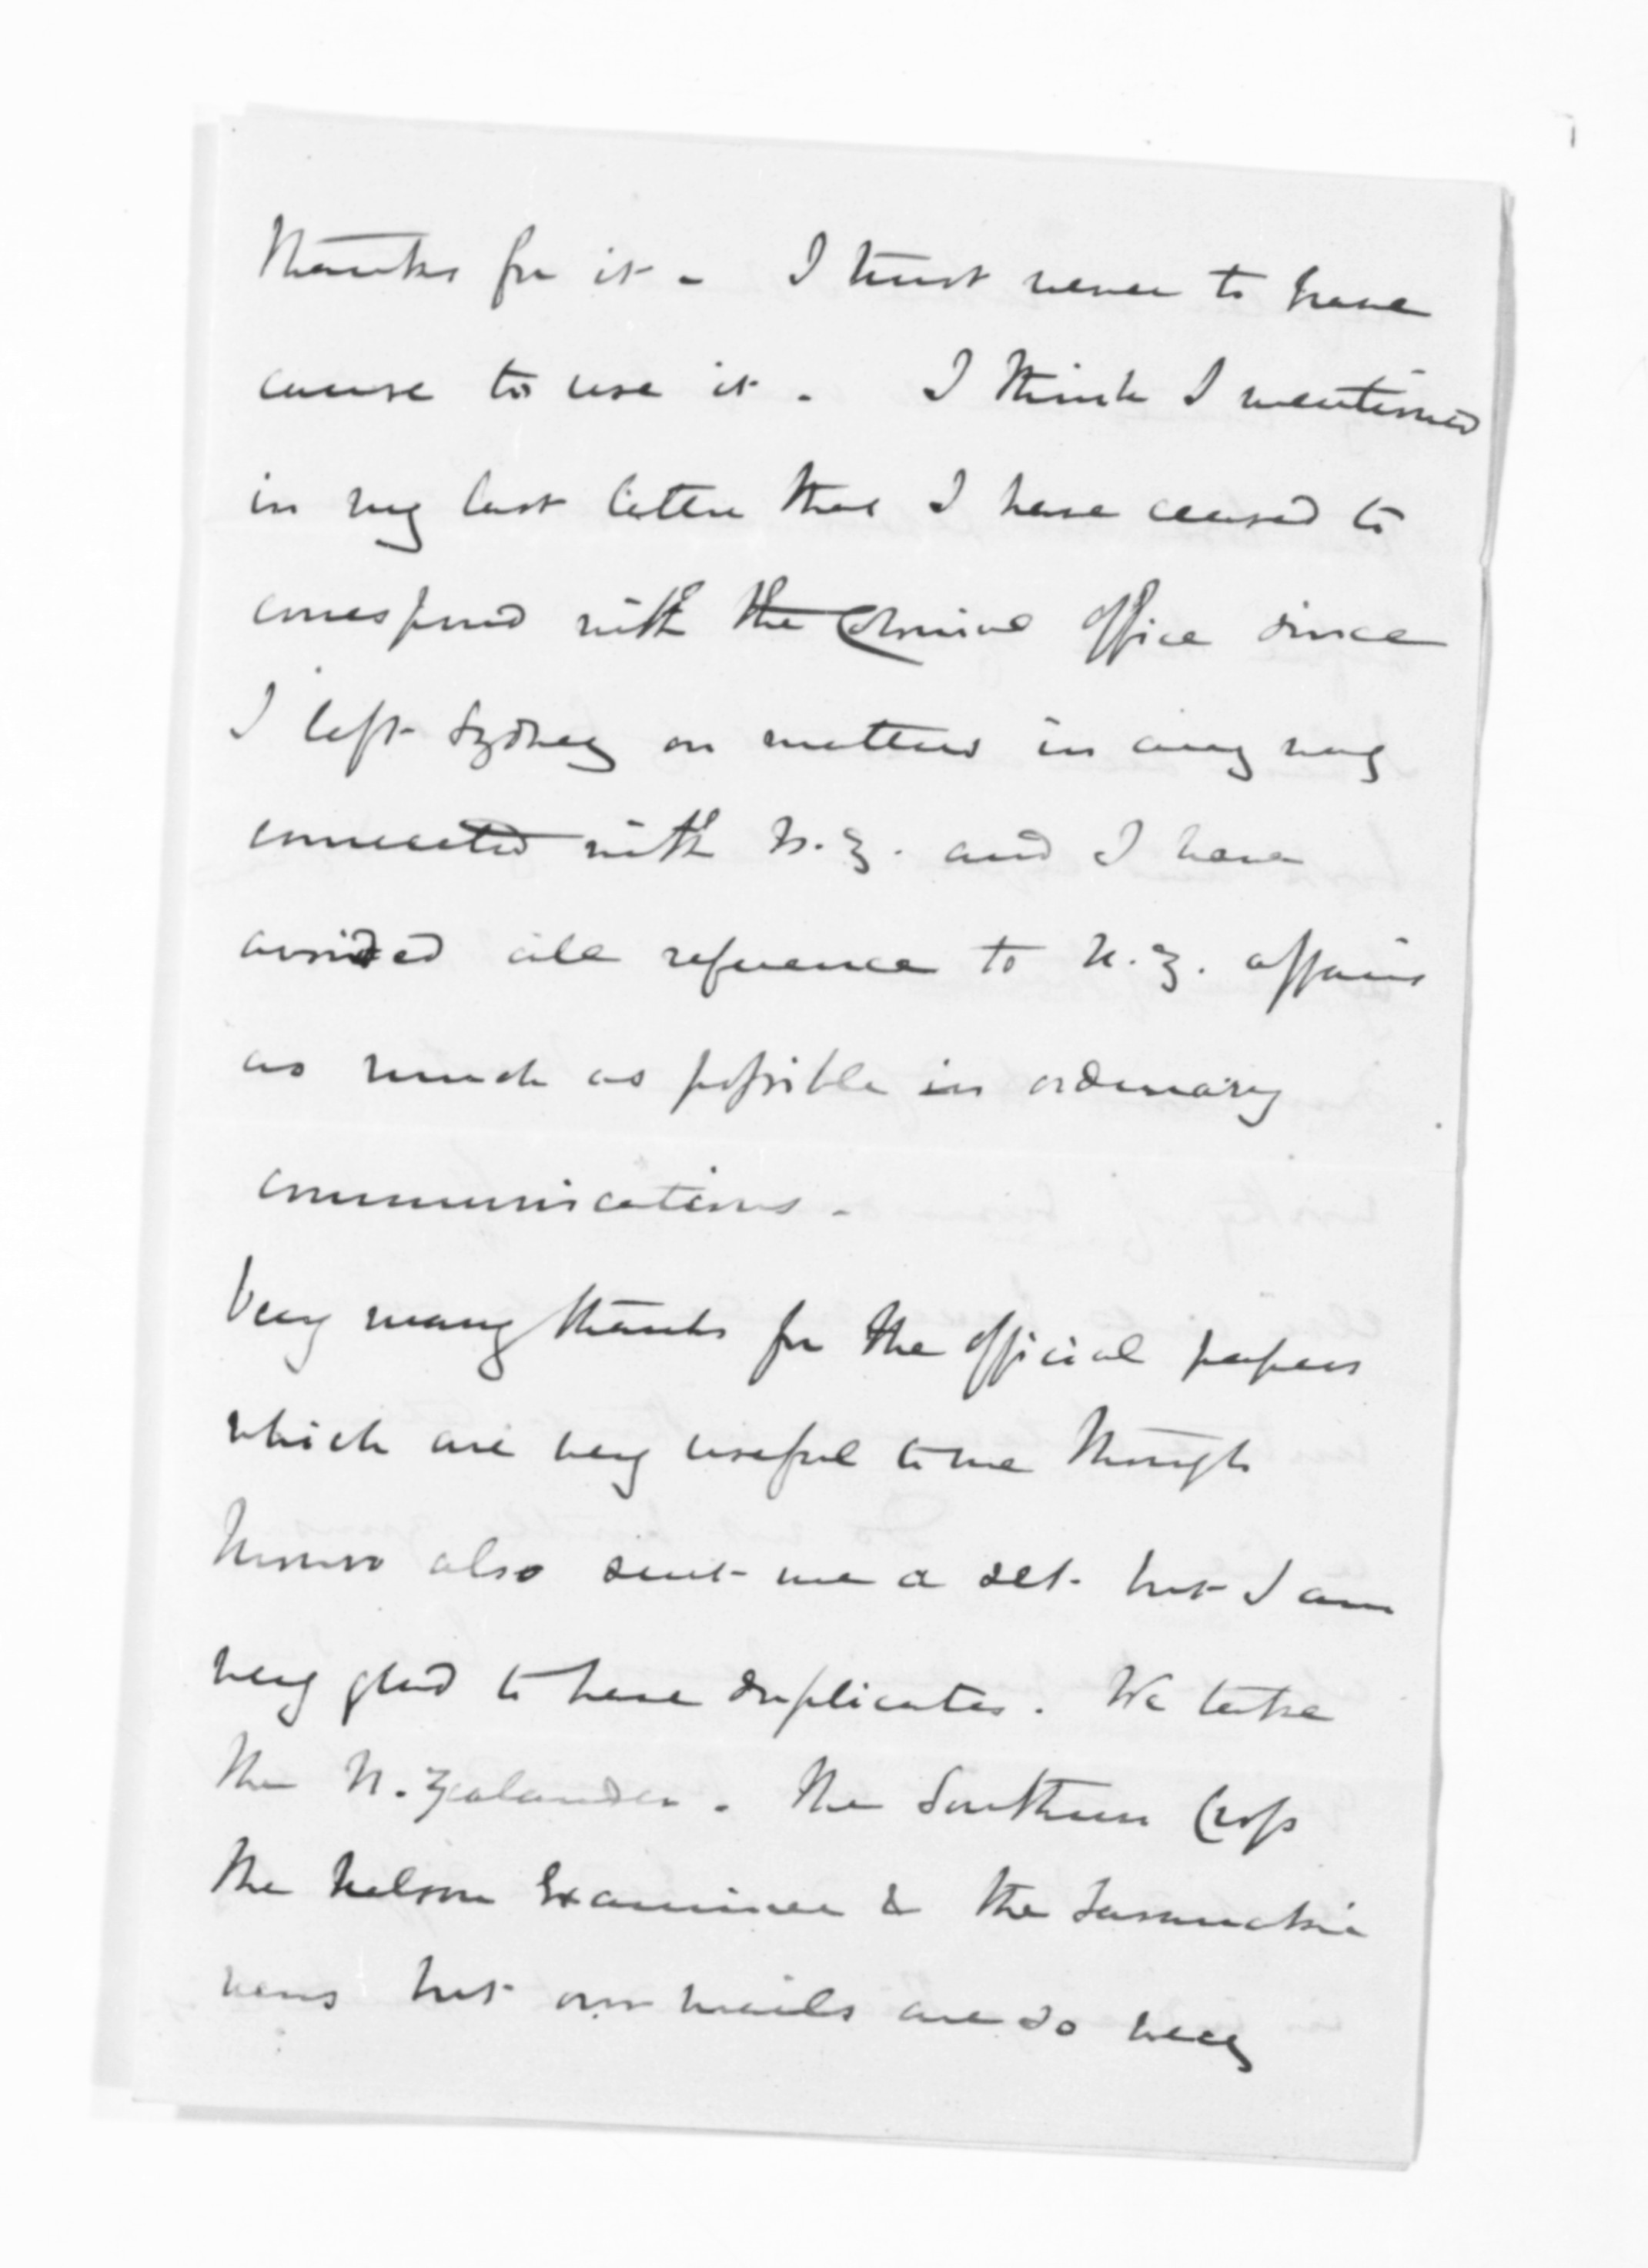 thanks for it - I trust never to have
cause to use it. I think I mentioned
in my last letter that I have ceased to
correspond with the Colonial Office since
I left Sydney on matters in any way
connected with N.Z. and I have
avoided all reference to N.Z. affairs
as much as possible in ordinary
communications -
Very many thanks for the official papers
which are very useful to me though
Monro also sent me a set. but I am
very glad to have duplicates. We take
the N. Zealander. The Southern Cross
the Nelson Examiner & the Taranaki
news but our mails are so very